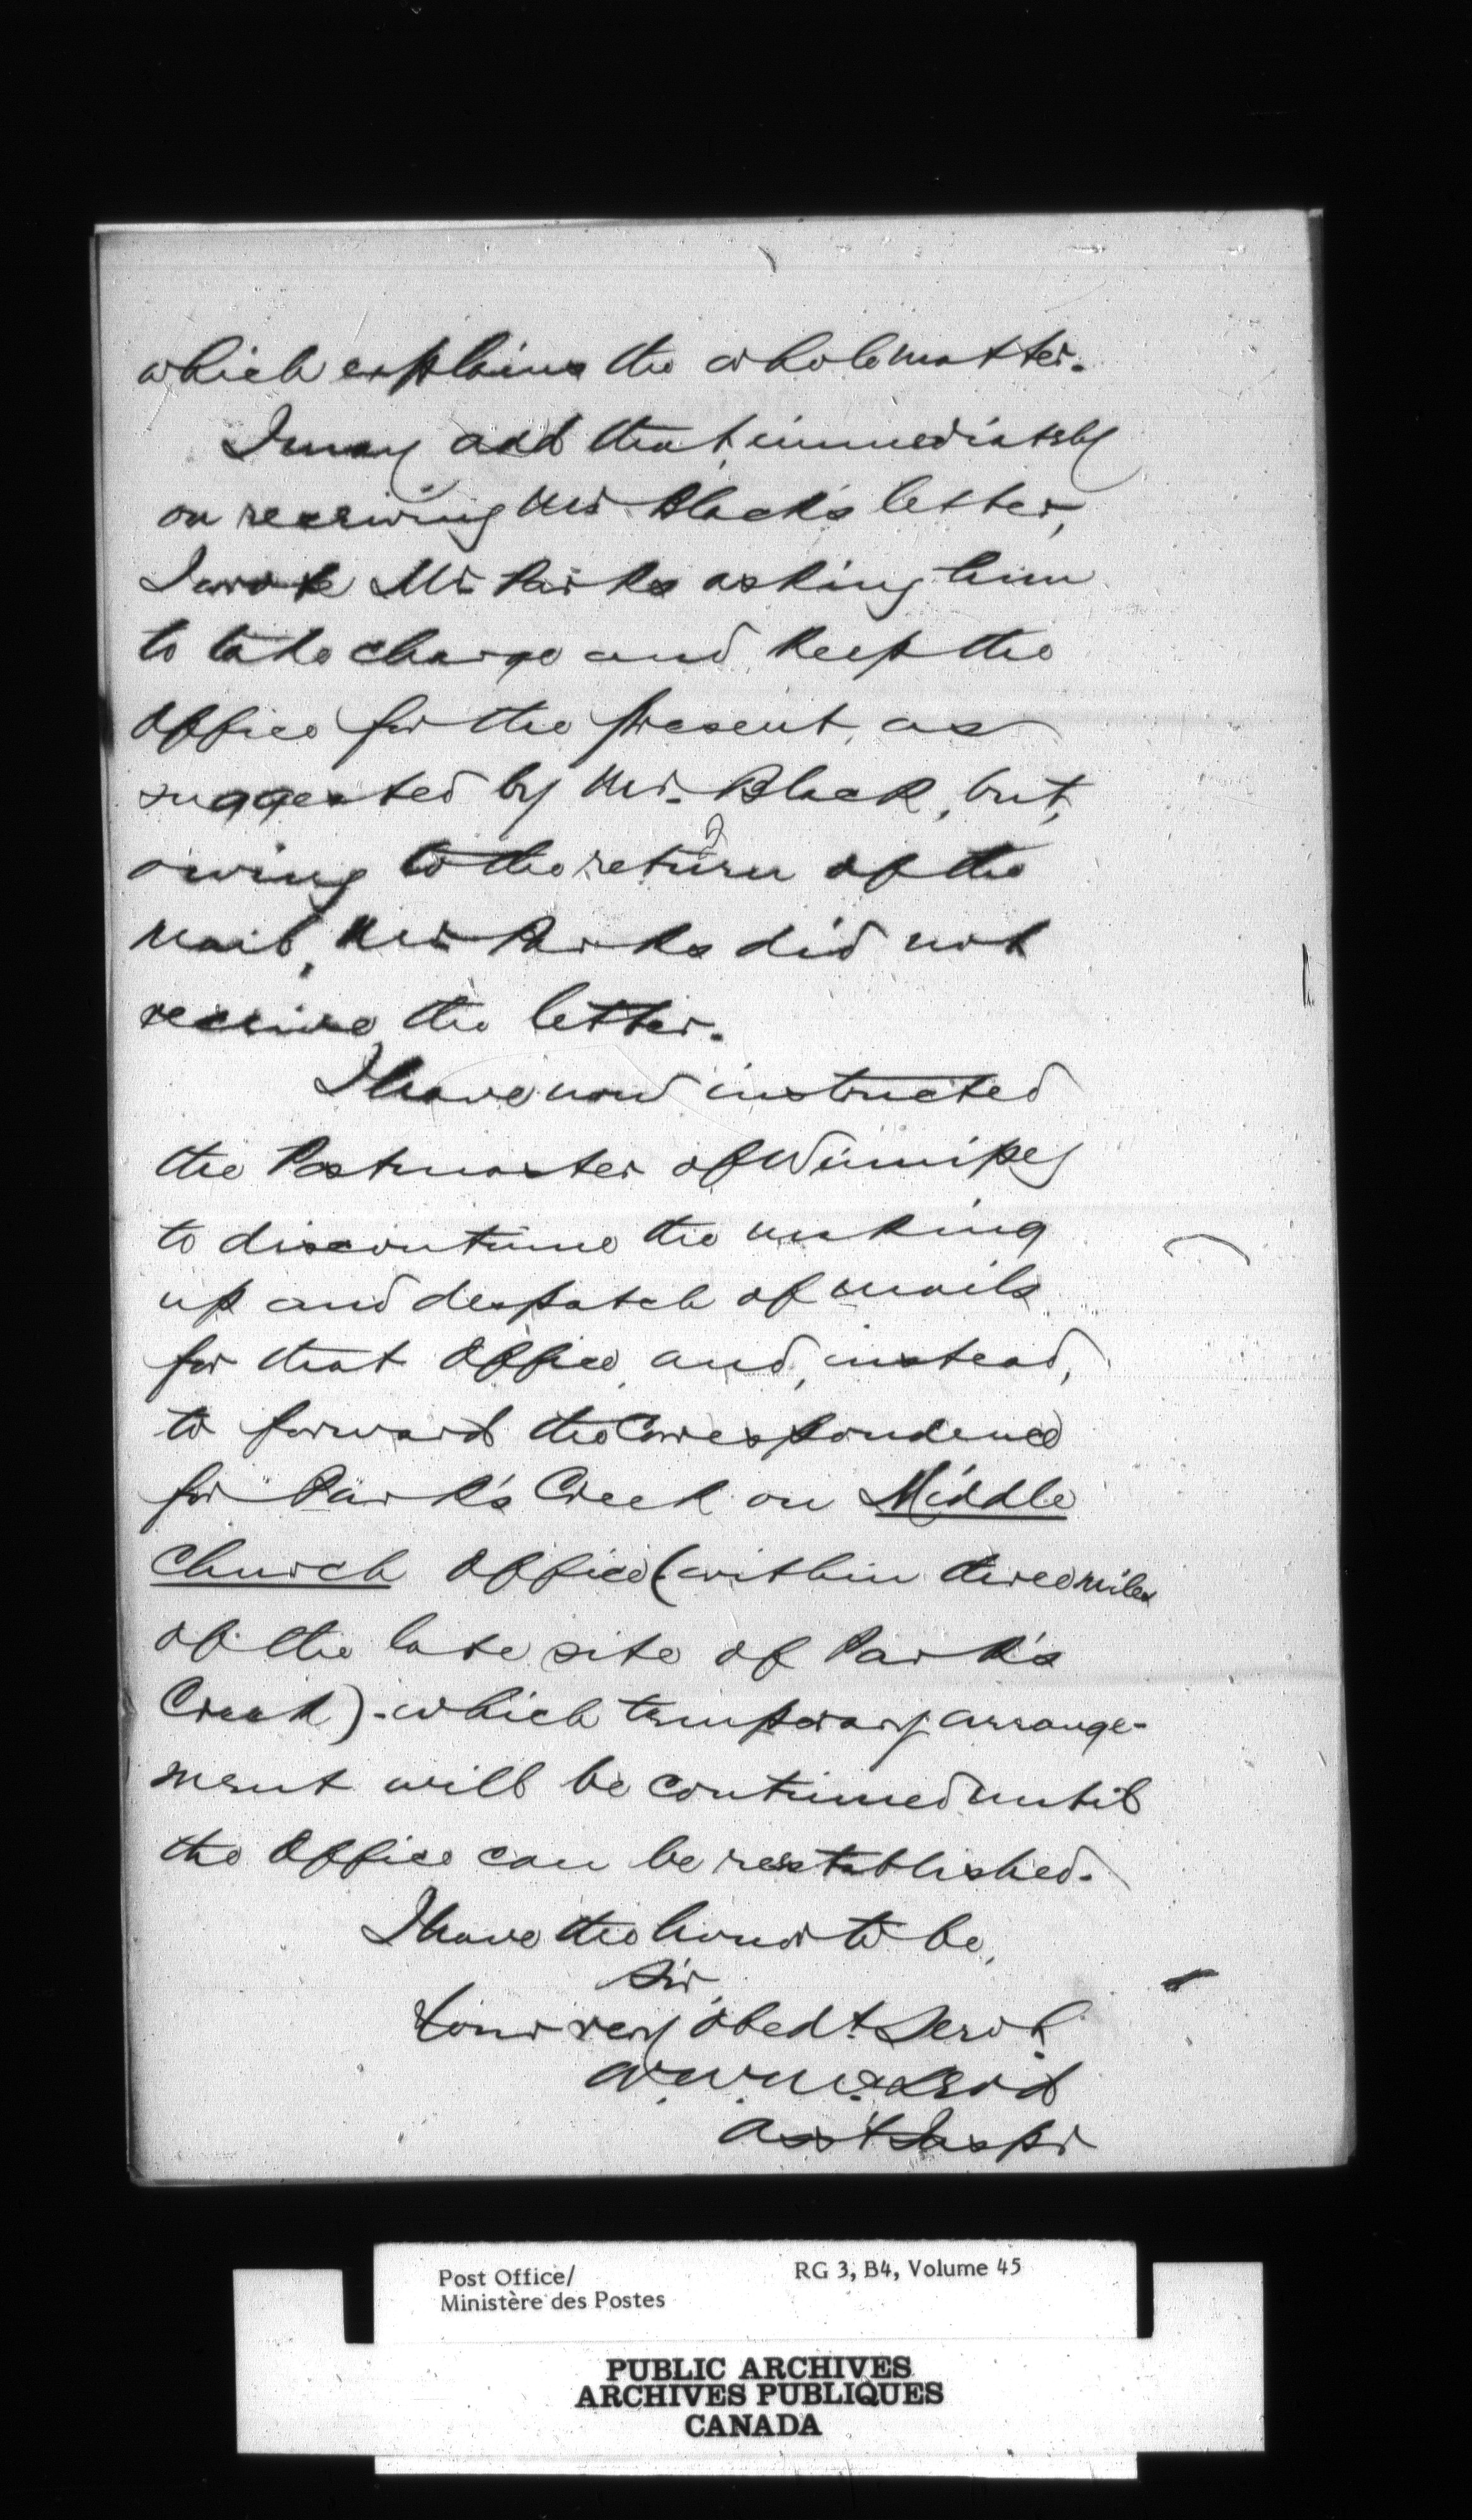 which explains the whole matter.
I may add that, immediately
on receiving Mr Black's letter,
I wrote Mr Parks asking him
to take charge and keep the
Office for the present, as
suggested by Mr. Black, but,
owing to the return of the
mail, Mr Parks did not
receive the letter.
I have now instructed
the Postmaster of Winnipeg
to discontinue the making
up and despatch of mails
for that Office, and, instead,
to forward the Correspondence
for Park's Creek on Middle
Church Office (within three miles
of the late site of Park's
Creek) - which temporary arrange-
ment will be continued until
the Office can be reestablished.
I have the honor to be,
Sir,
Your very obedt. Servt.
W. W. McLeod
Asst Inspr
Post Office/ RG 3, B4, Volume 45
Ministère des Postes
PUBLIC ARCHIVES
ARCHIVES PUBLIQUES
CANADA